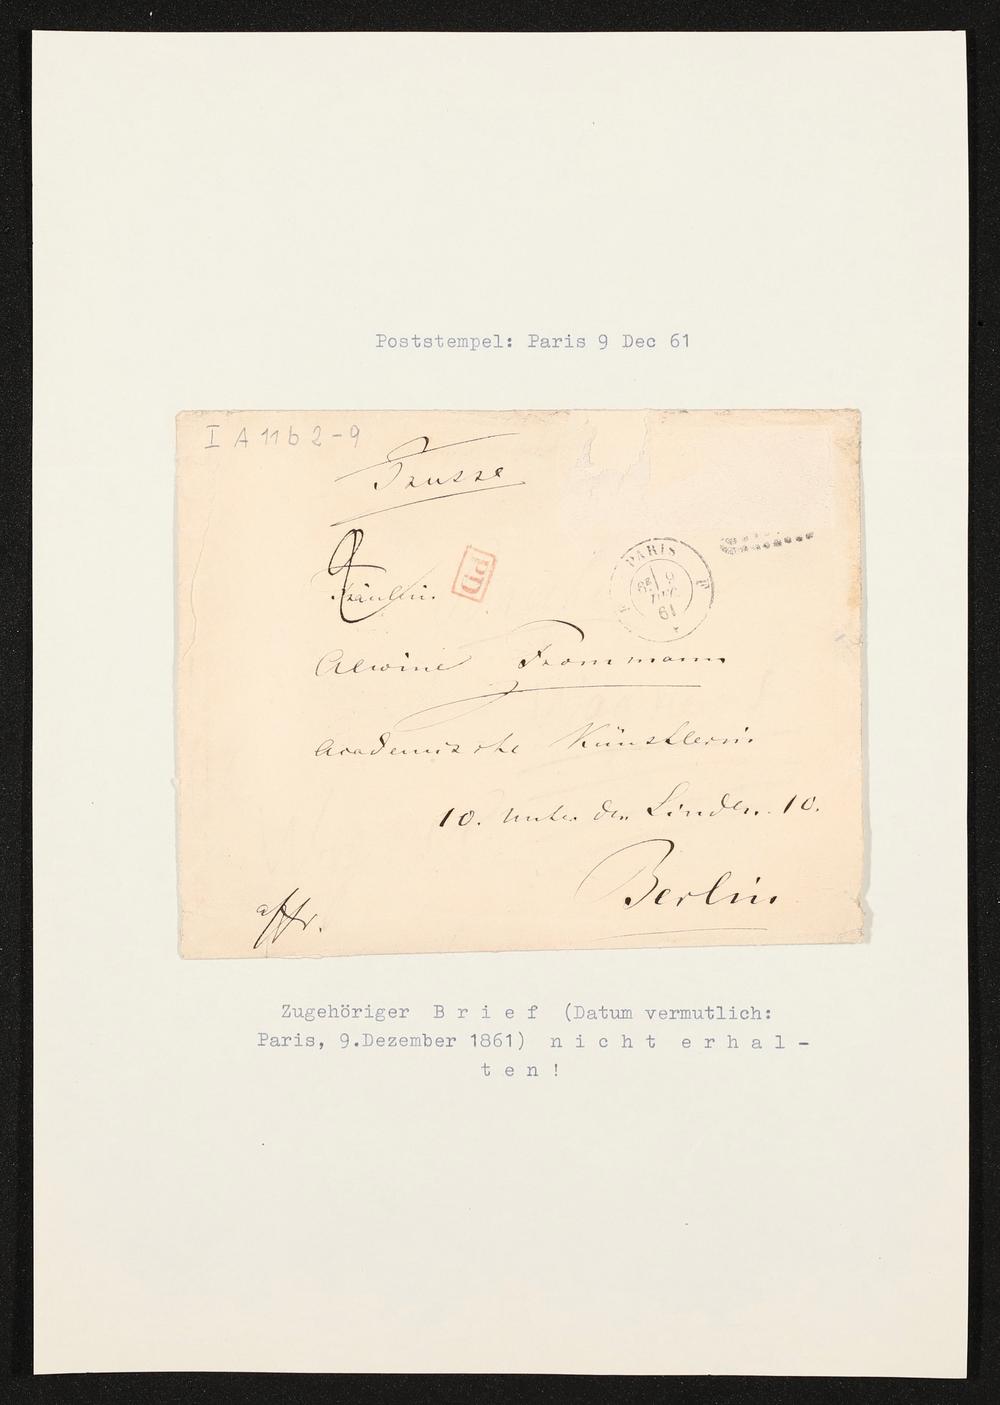 Poststempel: Paris 9 Dec 61
I A 11 b 2-9
Prusse
Fräulein
PD
PARIS
9
DEC
61
Alwine Frommann
Academische Künstlerin
10. Unter den Linden. 10.
Berlin.
affr.
Zugehöriger B r i e f (Datum vermutlich:
Paris, 9.Dezember 1861) n i c h t e r h a l -
t e n !